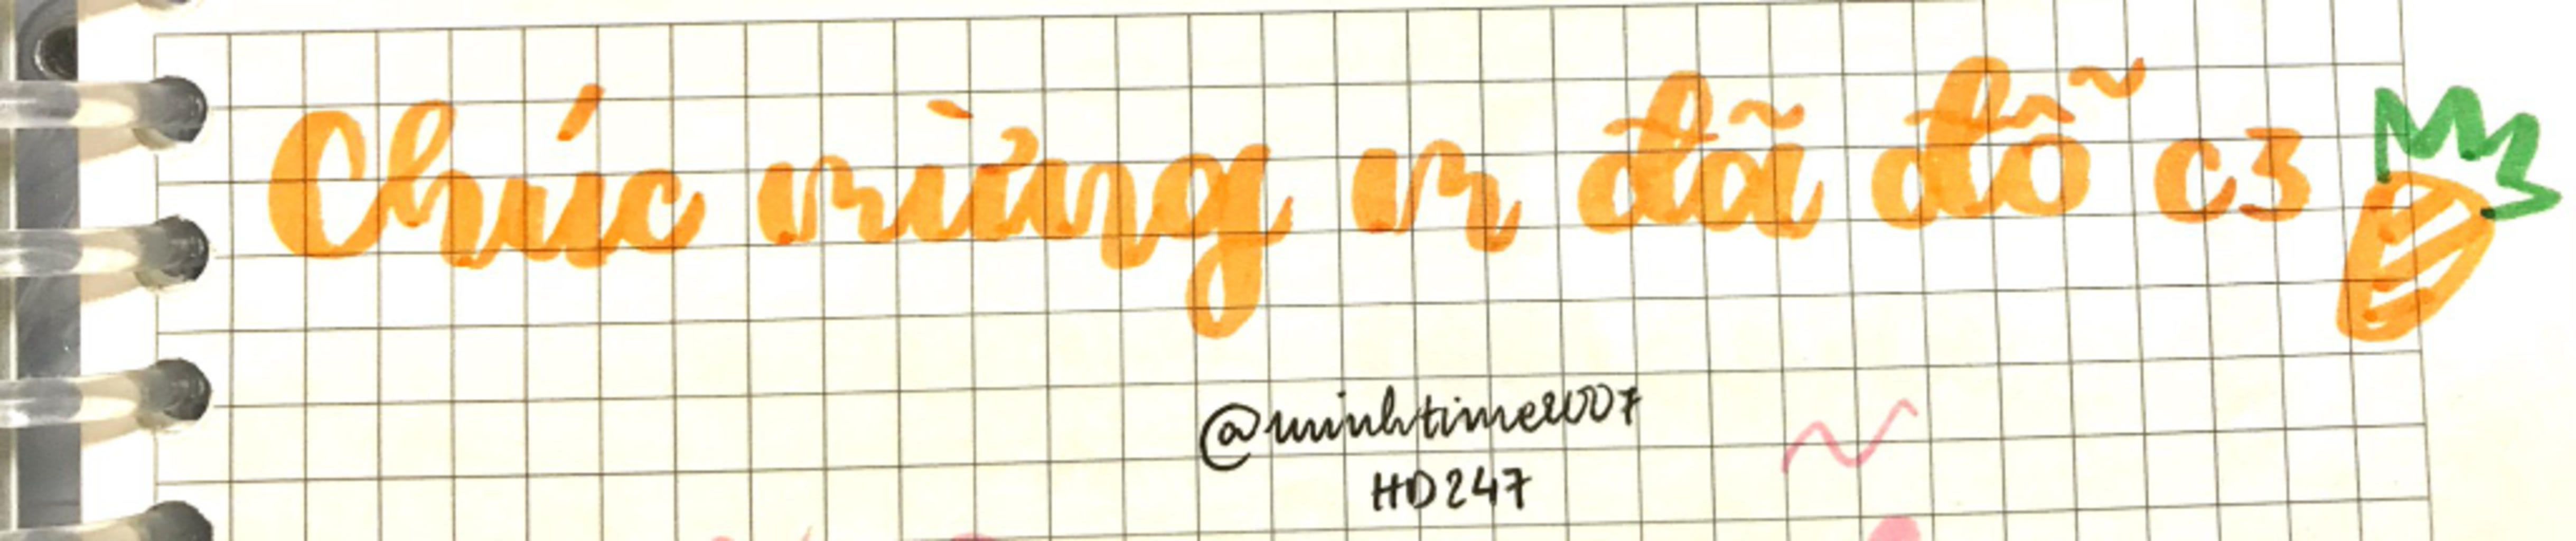 Chúc mừng m đã đỗ c3
@minhtime2007
HD247